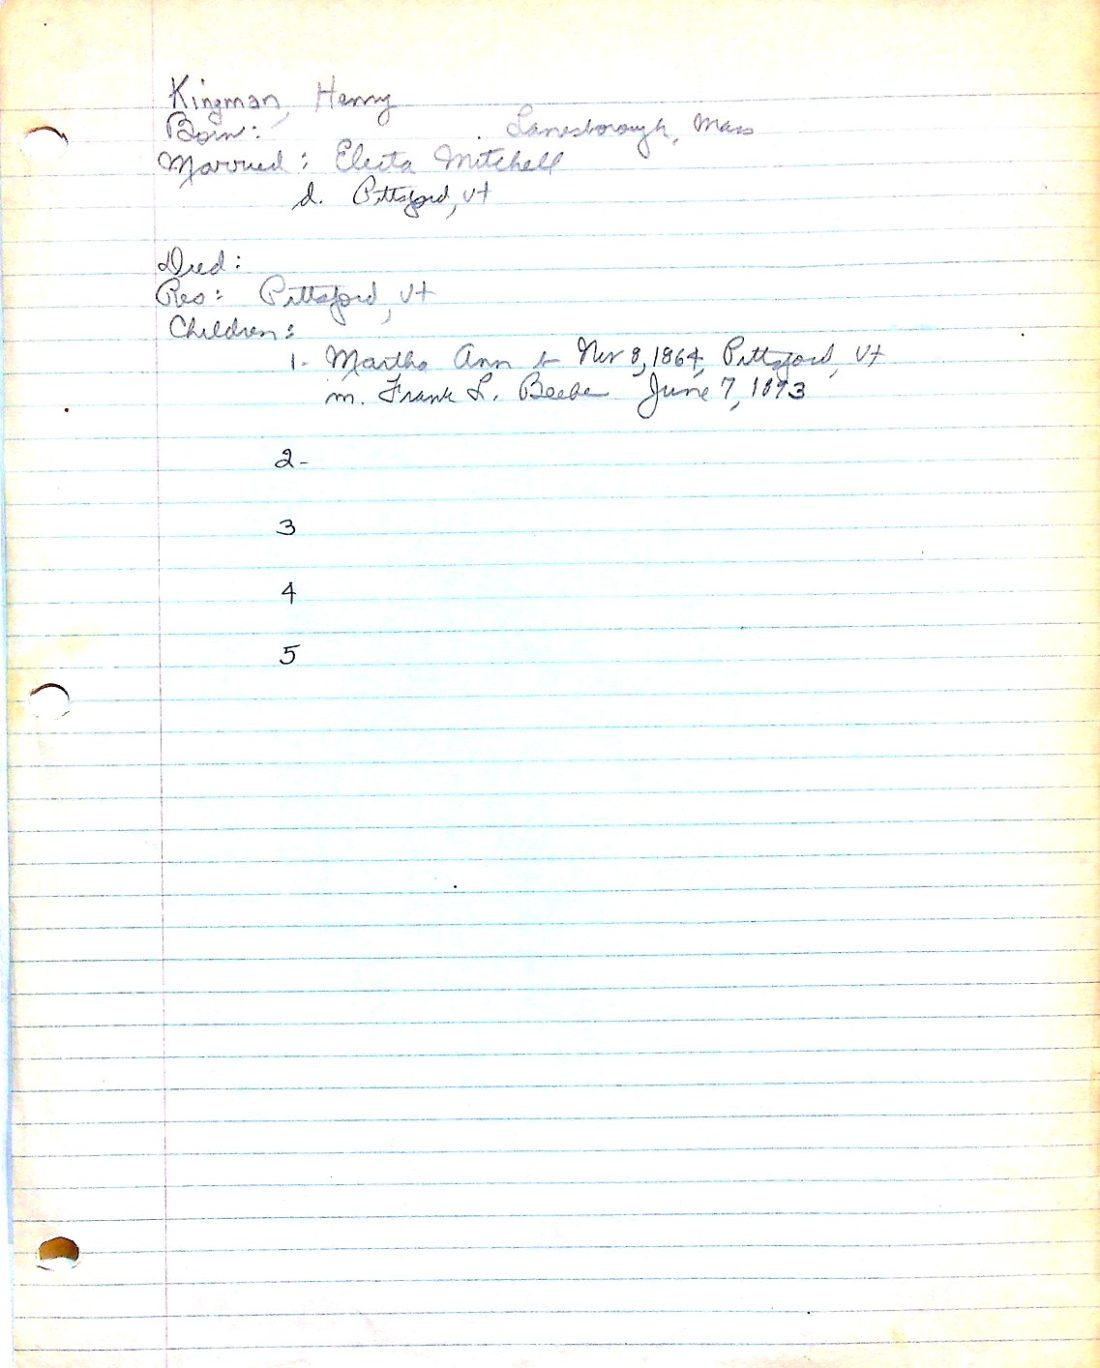 Kingman, Henry
Born: Lanesborough, Mass
Married: Electa Mitchell
d. Pittsford, Vt
Died:
Res: Pittsford, Vt
Children:
1- Martha Ann b Nov 8, 1864, Pittsford, Vt
m. Frank L. Beebe June 7, 1893
2-
3
4
5